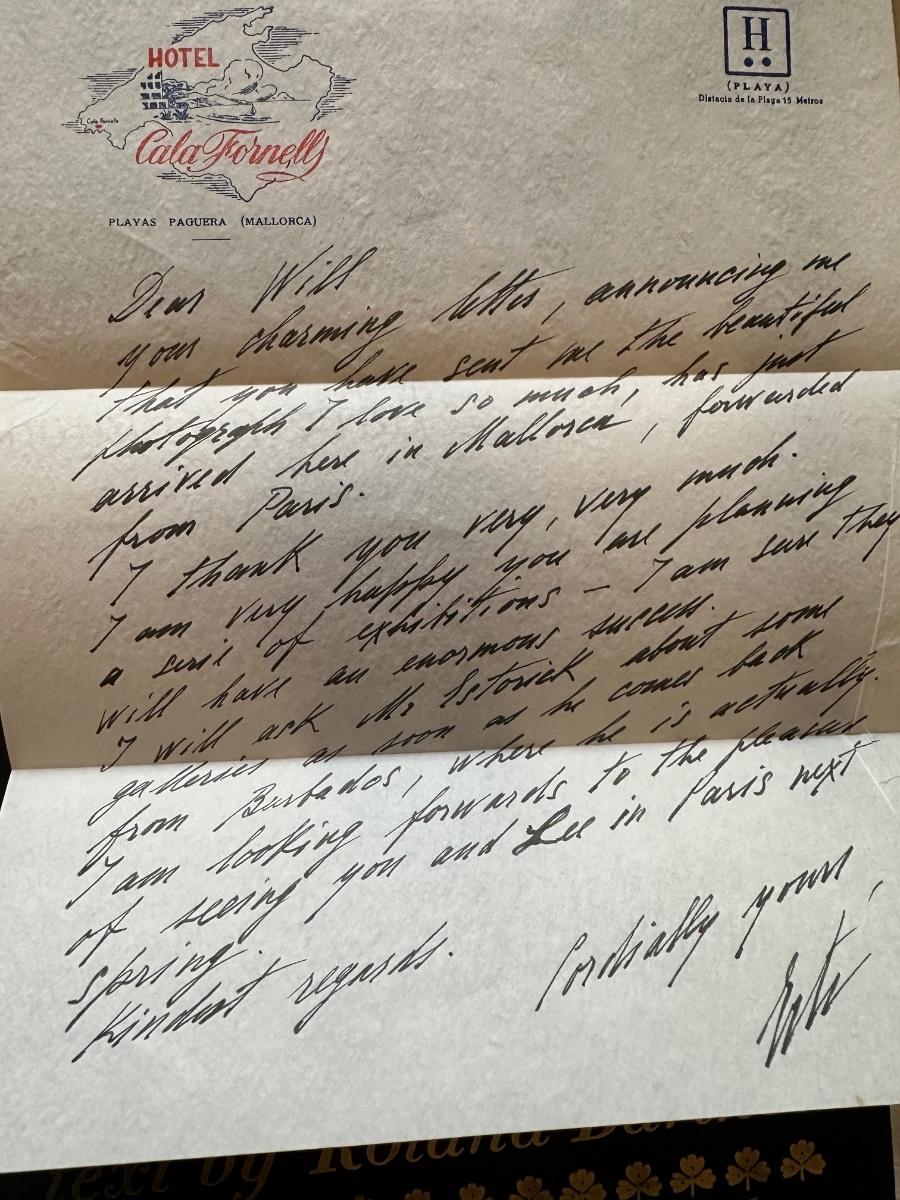 HOTEL
Cala Fornells
Cala Fornells
PLAYAS PAGUERA (MALLORCA)
H
(PLAYA)
Distacia de la Playa 15 Metros
Dear Will
your charming letter, announcing me
that you have sent me the beautiful
photograph I love so much, has just
arrived here in Mallorca, forwarded
from Paris.
I thank you very, very much.
I am very happy you are planning
a serie of exhibitions – I am sure they
will have an enormous success.
I will ask Mr Estorick about some
galleries as soon as he comes back
from Barbados, where he is actually.
I am looking forwards to the pleasure
of seeing you and Lee in Paris next
spring.
Kindest regards.
Cordially yours,
Erté
Text by Roland